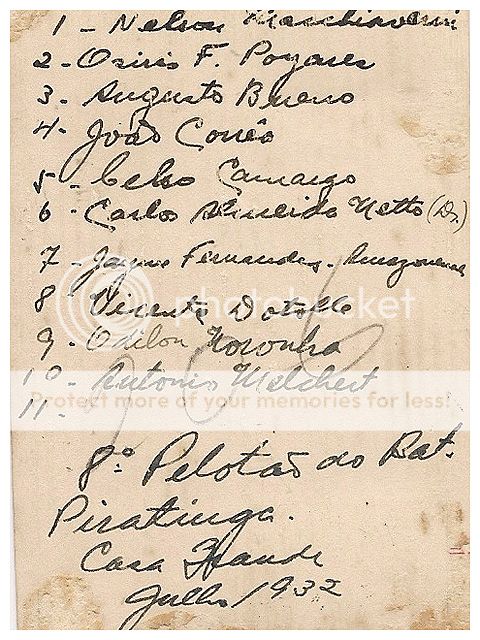 1 - Nelson
2 - Osiris F. Poyares
3 - Augusto Bueno
4 - João Corrêa
5 - Celso Camargo
6 - Carlos Netto (Dr.)
7 - Jayme Fernandes - Amazonense
8 - Vicente Dotollo
9 - Odilon Noronha
10 - Antonio Melchert
11 -
8º Pelotão do Bat.
Piratinga.
Casa Grande
Julho/932
photobucket
Protect more of your memories for less!